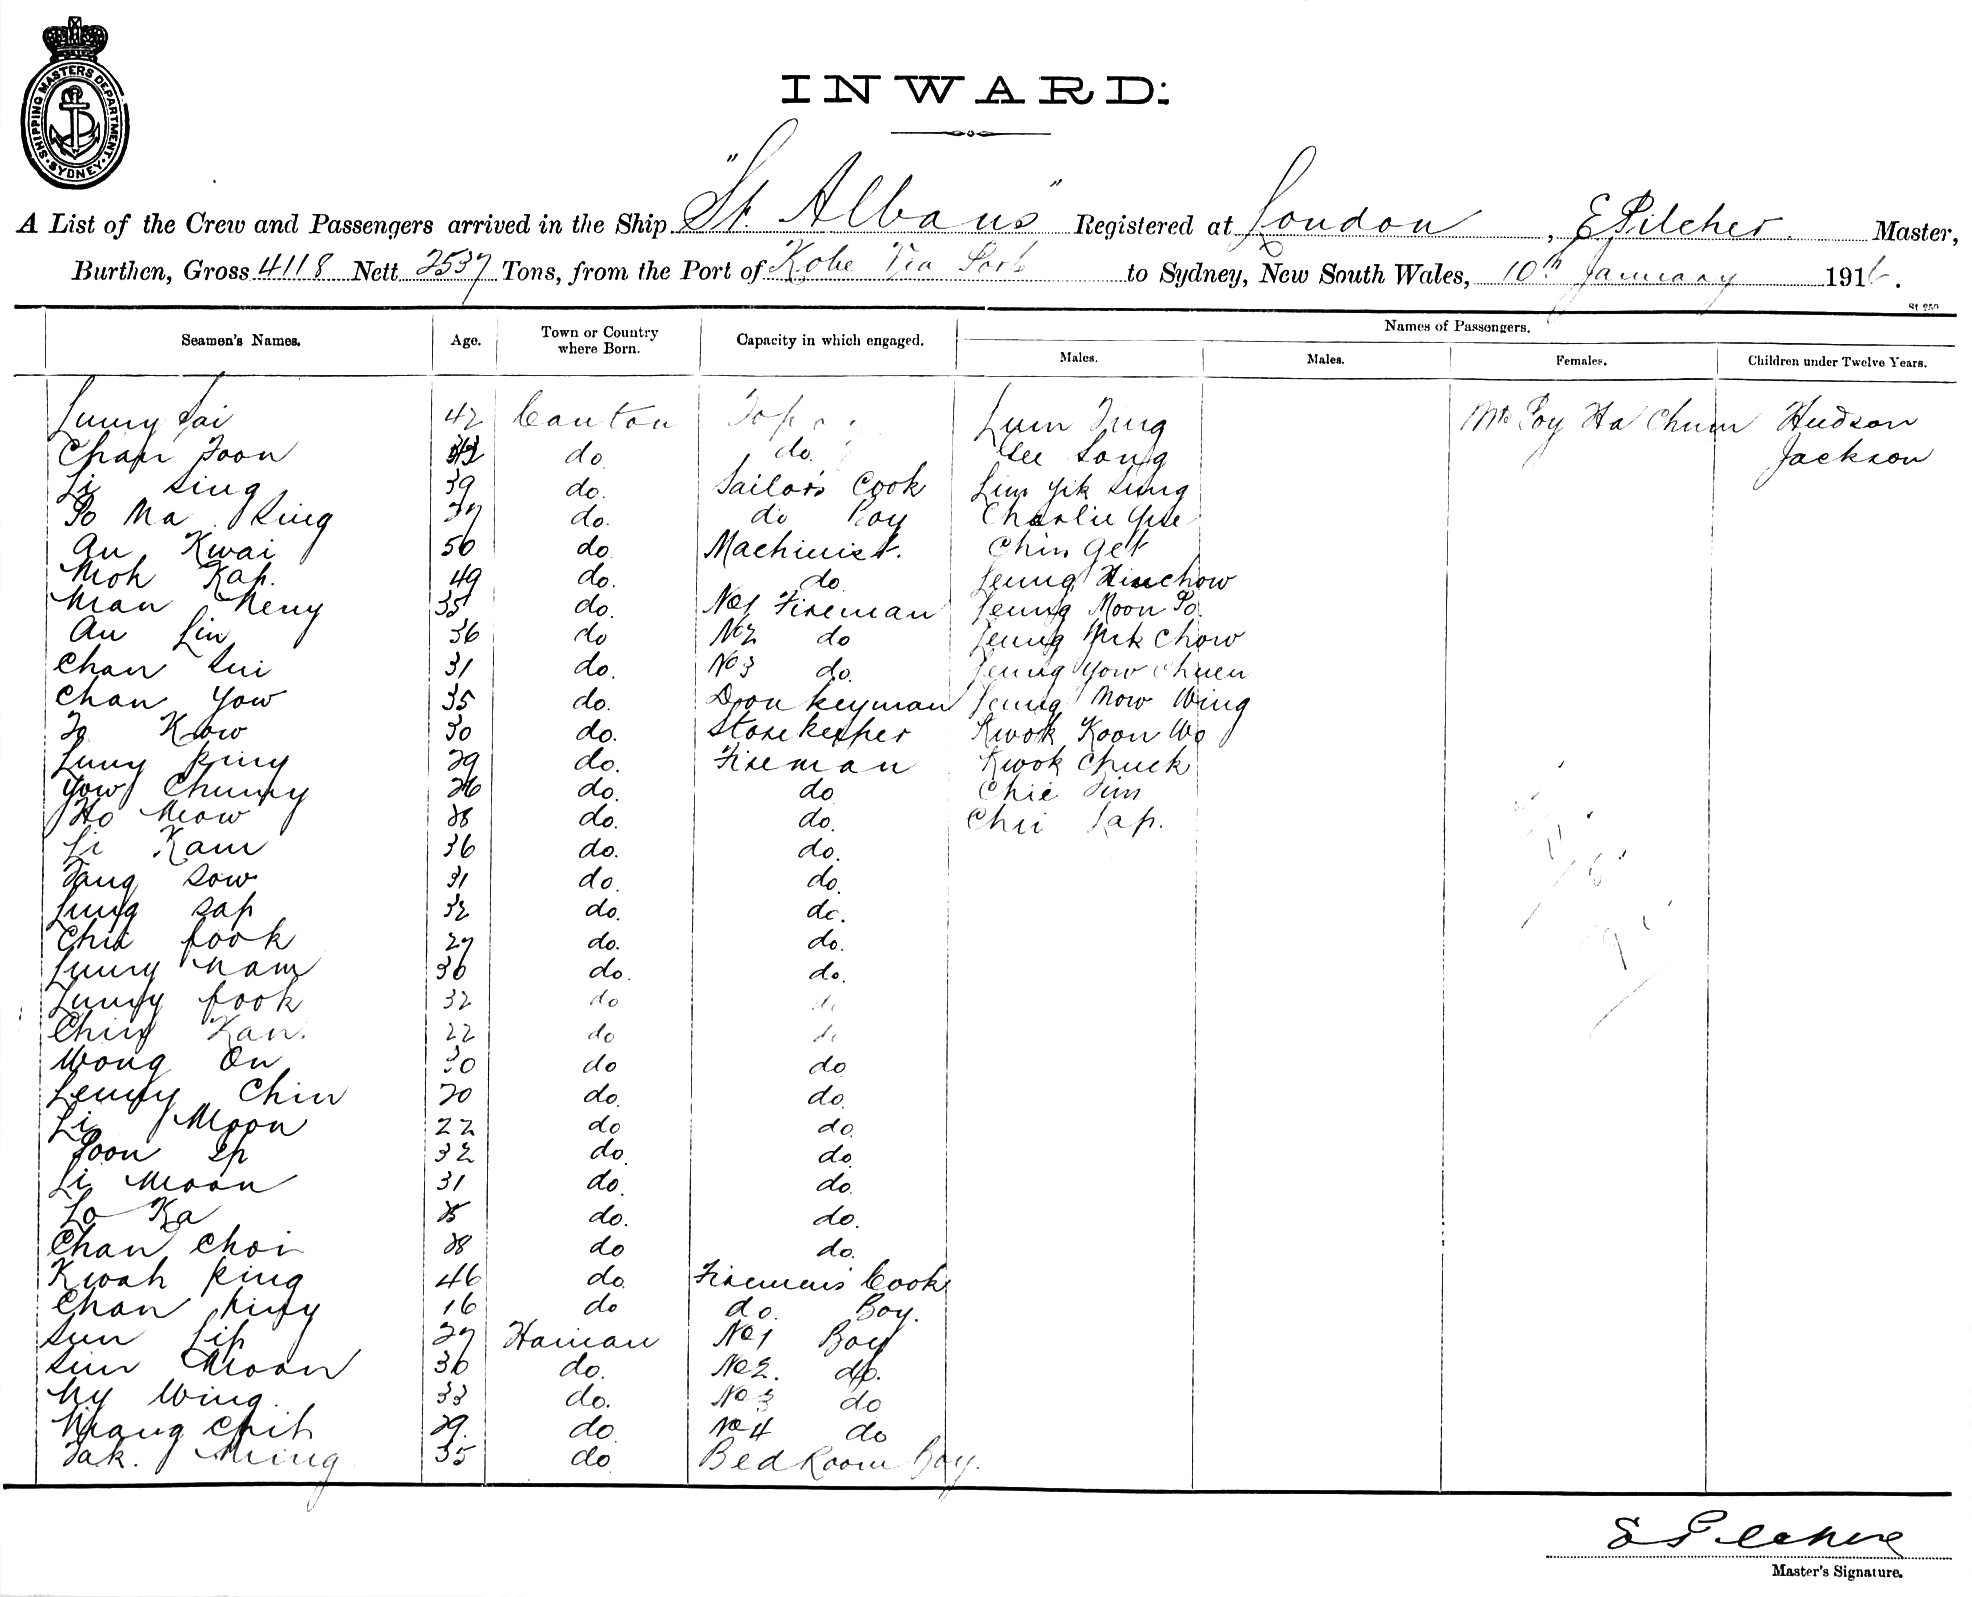 SHIPPING MASTERS DEPARTMENT
SYDNEY
INWARD:
A List of the Crew and Passengers arrived in the Ship "St. Albans" Registered at London, E Pilcher. Master,
Burthen, Gross 4118 Nett 2537 Tons, from the Port of Kobe Via Ports to Sydney, New South Wales, 10th January 1916.
Names of Passengers.
Seamen's Names. Age. Town or Country where Born. Capacity in which engaged. Males. Males. Females. Children under Twelve Years.
Leung Sai 42 Canton Lum Ting Mrs Poy Ha Chum Hudson
Chan Toon do do. Lee Song Jackson
Li Sing 39 do. Sailors Cook Lum Yik Sung
Po Ma Sing 37 do. do Boy Charlie Yee
Au Kwai 50 do Machinist. Chin Get
Mok Kap. 49 do. do Leung Hinchow
Man Neng 35 do. No1 Fireman Leung Moon Po
Au Lin 36 do No2 do Leung Yuk Chow
Chan Sui 31 do. No3 do. Leung Yow Chuen
Chan Yow 35 do. Donkeyman Leung Mow Wing
To Kow 30 do. Storekeeper Kwok Koon Wo
Lung King 29 do. Fireman Kwok Chuck
Yow Chung 26 do. do Chie Tim
Ho Meow 28 do. do. Chii Lap.
Li Kam 36 do. do.
Tang Sow 31 do. do.
Lung Sap 32 do. do.
Chii Fook 27 do. do.
Leung Nam 36 do. do.
Leung Fook 32 do do
Chin Kan. 22 do do
Wong On 30 do do
Leung Chin 20 do. do.
Li Moon 22 do do
Poon Ip 32 do. do
Li Moon 31 do. do.
Lo Ka 25 do. do.
Chan Choi 28 do do.
Kwok King 46 do. Firemens Cook
Chan King 16 do do. Boy.
Sun Lip 27 Hainan No1 Boy
Sun Moon 36 do. No2. do.
Ny Wing. 33 do. No3 do
Wong Chit 29. do. No4 do
Tak. Ming 35 do Bed Room Boy.
E Pilcher
Master's Signature.